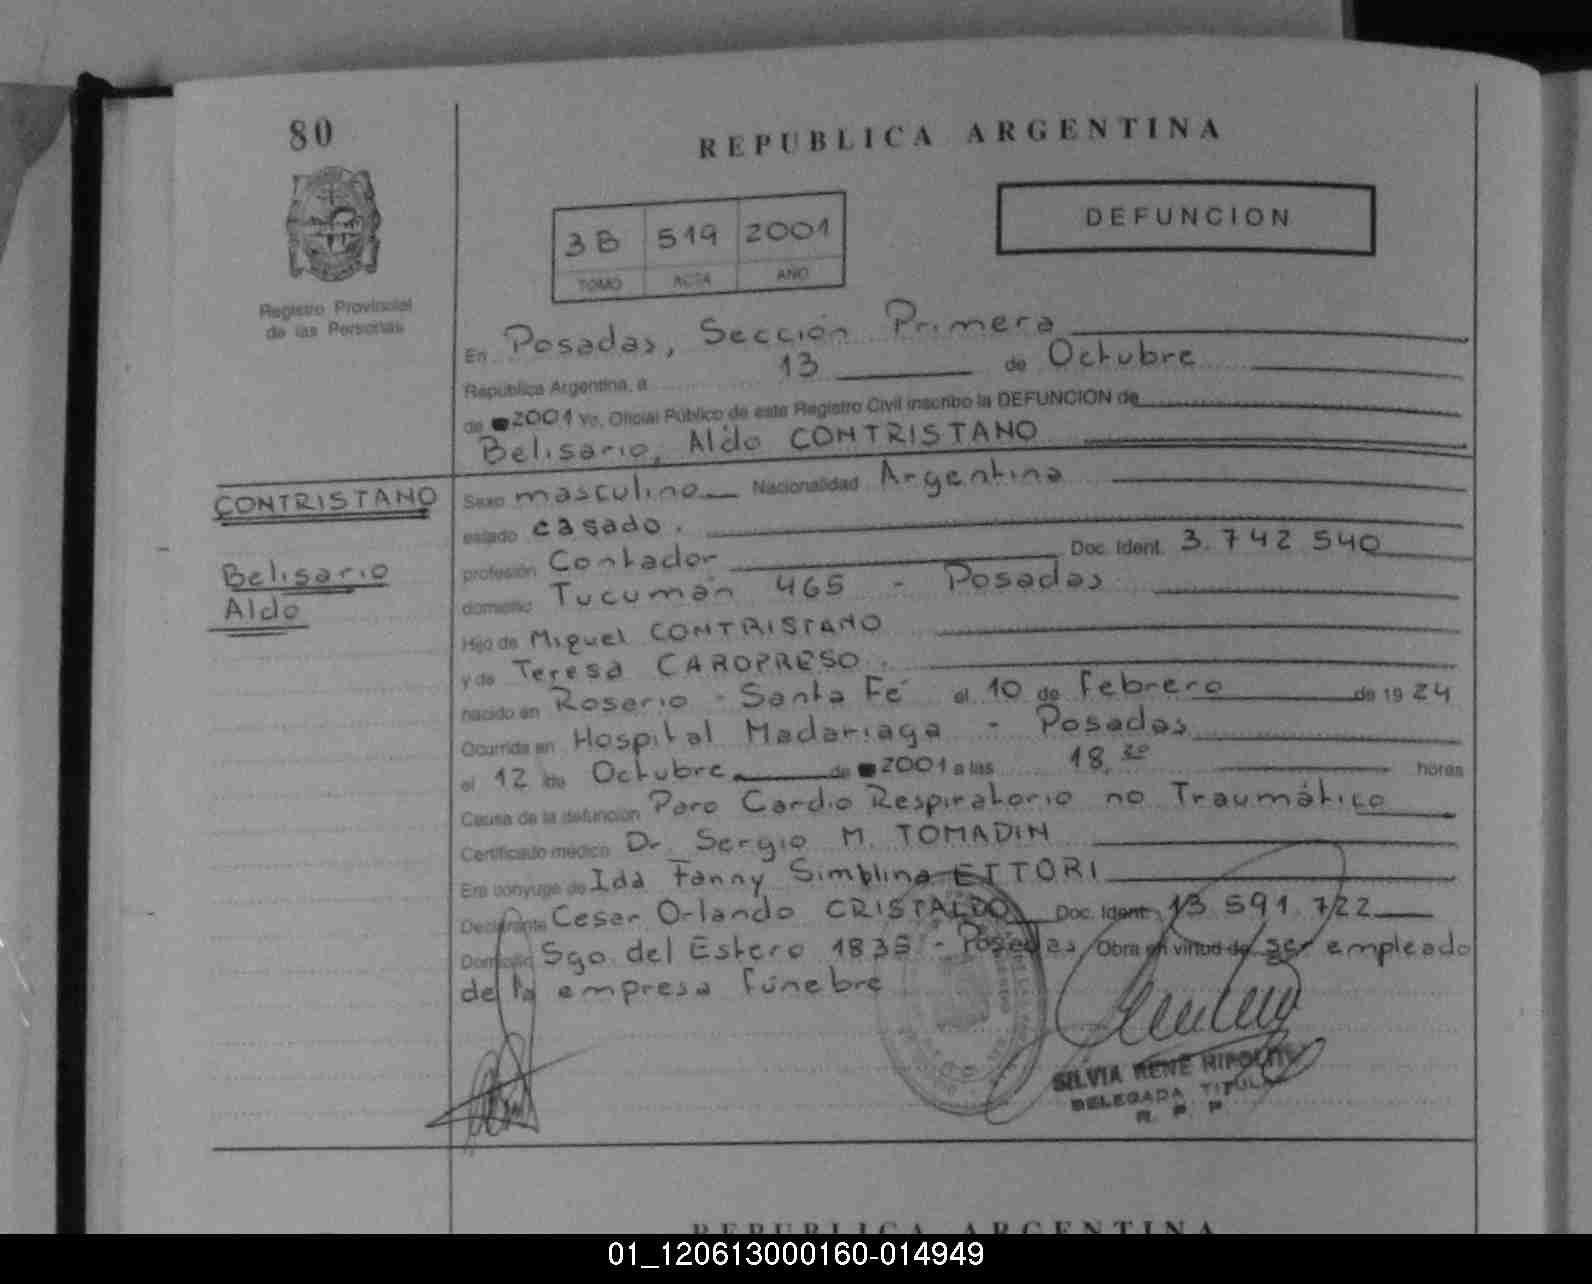 80
REPUBLICA ARGENTINA
Registro Provincial
de las Personas
3B 519 2001
TOMO ACTA AÑO
DEFUNCION
En Posadas, Sección Primera
República Argentina, a 13 de Octubre
de 2001 Yo, Oficial Público de este Registro Civil inscribo la DEFUNCION de
Belisario, Aldo CONTRISTANO
CONTRISTANO
Belisario
Aldo
Sexo masculino Nacionalidad Argentina
estado casado.
profesión Contador Doc. Ident. 3.742 540
domicilio Tucumán 465 - Posadas
Hijo de Miguel CONTRISTANO
y de Teresa CAROPRESO.
nacido en Rosario - Santa Fé el 10 de febrero de 1924
Ocurrida en Hospital Madariaga - Posadas
el 12 de Octubre de 2001 a las 18,30 horas
Causa de la defunción Paro Cardio Respiratorio no Traumático
Certificado médico Dr. Sergio M. TOMADIN
Era cónyuge de Ida Fanny Simblina ETTORI
Declarante Cesar Orlando CRISTALDO Doc. Ident. 13 591.722
Domicilio Sgo. del Estero 1835 - Posadas Obra en virtud de ser empleado
de la empresa fúnebre
SILVIA RENE HIPOLITO
DELEGADA TITULAR
R. P. P.
REPUBLICA ARGENTINA
01_120613000160-014949